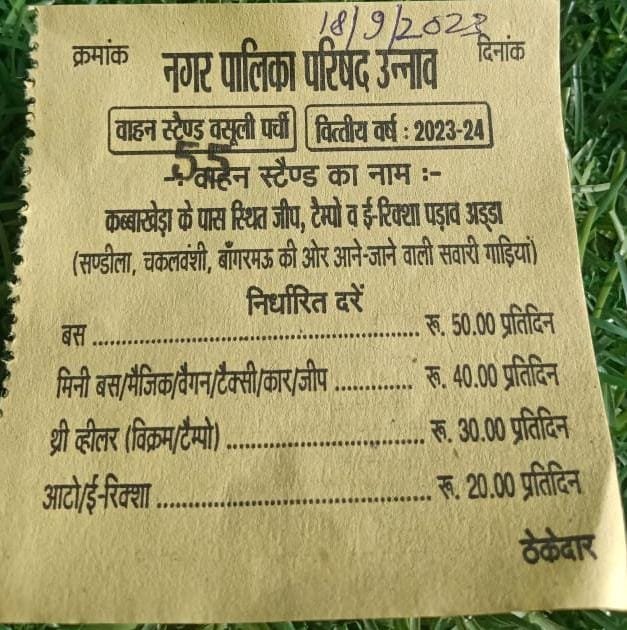 18/9/2023
क्रमांक दिनांक
नगर पालिका परिषद उन्नाव
वाहन स्टैण्ड वसूली पर्ची वित्तीय वर्ष : 2023-24
55
-: वाहन स्टैण्ड का नाम :-
कब्बाखेड़ा के पास स्थित जीप, टैम्पो व ई-रिक्शा पड़ाव अड्डा
(सण्डीला, चकलवंशी, बाँगरमऊ की ओर आने-जाने वाली सवारी गाड़ियां)
निर्धारित दरें
बस ........................................ रू. 50.00 प्रतिदिन
मिनी बस/मैजिक/वैगन/टैक्सी/कार/जीप ............ रू. 40.00 प्रतिदिन
थ्री व्हीलर (विक्रम/टैम्पो) ........................ रू. 30.00 प्रतिदिन
आटो/ई-रिक्शा ................................. रू. 20.00 प्रतिदिन
ठेकेदार